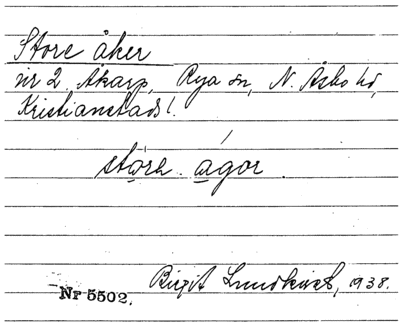 Store åker
nr 2 Åkarp, Rya sn, N. Åsbo hd,
Kristianstads l.
störe ágor
Birgit Lundkvist, 1938.
Nr 5502.